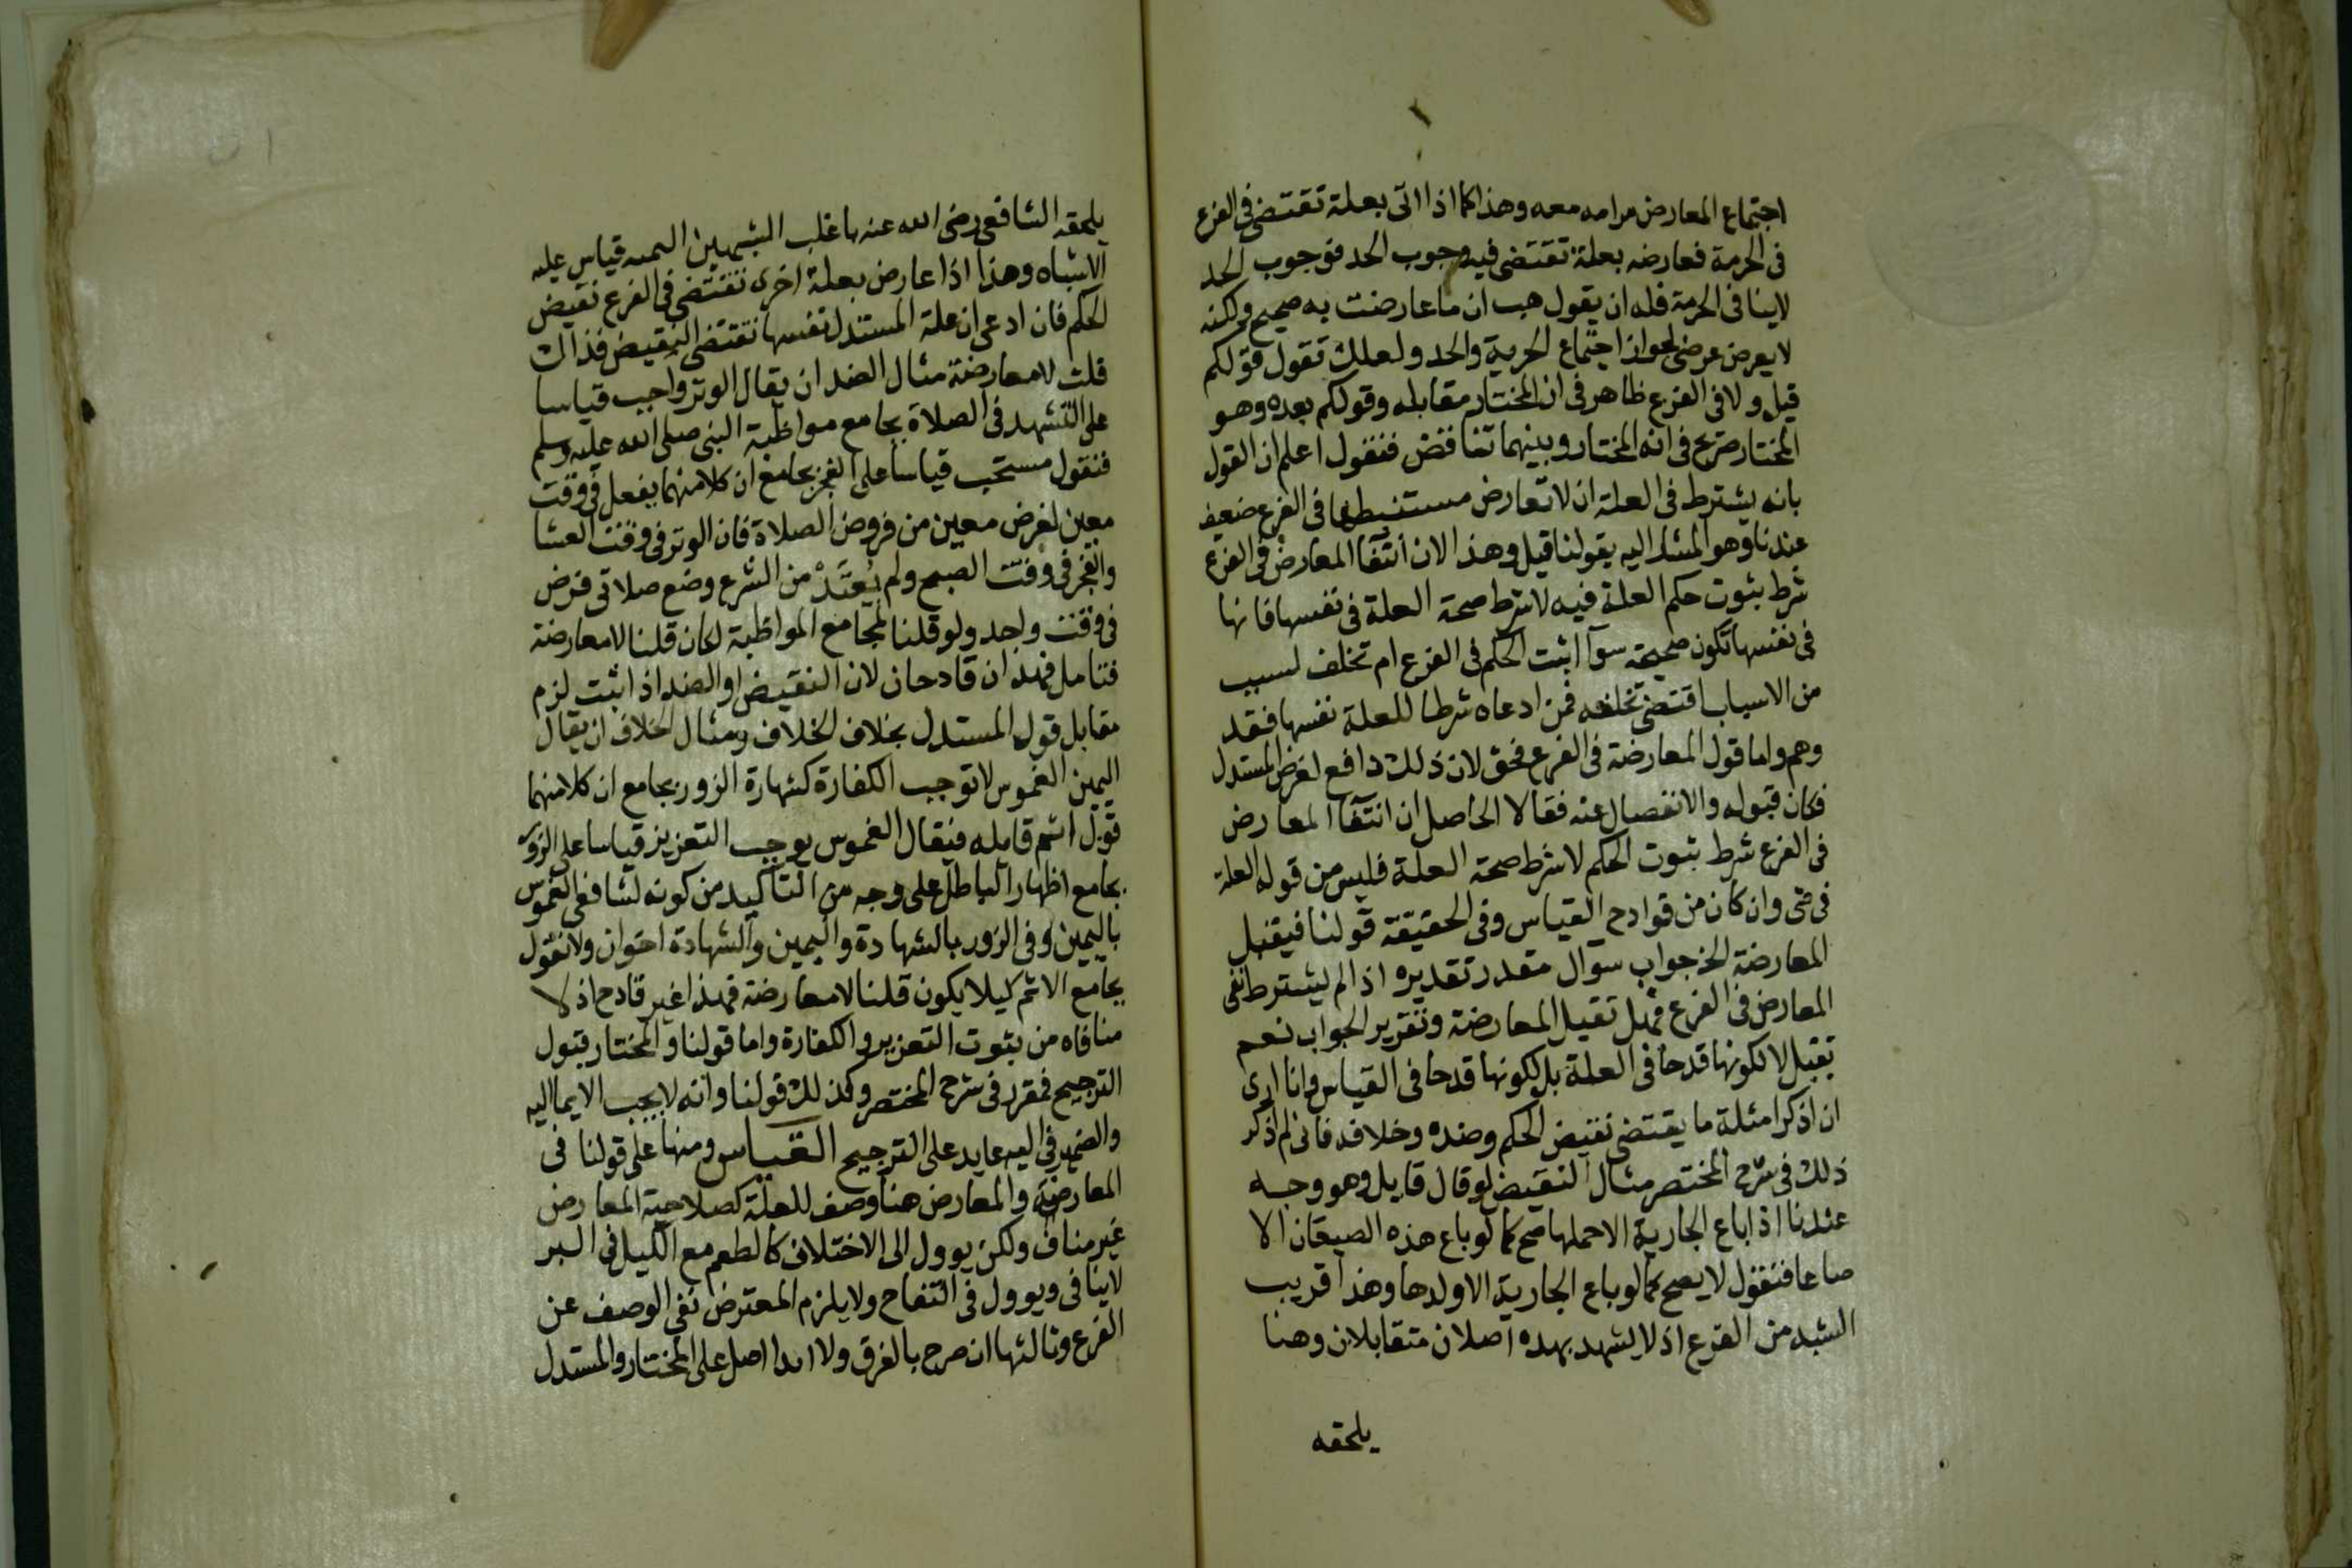 اجتماع المعارض مرامه معه وهذا كما اذا اتى بعلة تقتضى فى الفرع
فى الحرمة فعارضه بعلة تقتضى فيه وجوب الحد فوجوب الحد
لاينافى الحرمة فله ان يقول هب ان ما عارضت به صحيح ولكنه
لا يعرض غرضى لجواز اجتماع الحرمة والحد ولعلك تقول قولكم
قيل ولا فى الفرع ظاهر فى ان المختار مقابله وقولكم بعده وهو
المختار صريح فى انه المختار وبينهما تناقض فنقول اعلم ان القول
بانه يشترط فى العلة ان لا تعارض مستنبطها فى الفرع ضعيف
عندنا وهو المشار اليه بقولنا قيل وهذا لان انتفا المعارض فى الفرع
شرط ثبوت حكم العلة فيه لا شرط صحة العلة فى نفسها فانها
فى نفسها تكون صحيحة سوآ اثبت الحكم فى الفرع ام تخلف لسبب
من الاسباب اقتضى تخلفه فمن ادعاه شرطا للعلة نفسها فقد
وهم واما قول المعارضة فى الفرع فحق لان ذلك دافع لغرض المستدل
فكان قبوله والانفصال عنه فقالا الحاصل ان انتفآ المعارض
فى الفرع شرط ثبوت الحكم لا شرط صحة العلة فليس من قوله العلة
فى شى وان كان من قوادح القياس وفى الحقيقة قولنا فيقبل
المعارضة الخ جواب سوآل مقدر تقديره اذا لم يشترط نفى
المعارض فى الفرع فهل تقبل المعارضة وتقرير الجواب نعم
تقبل لا لكونها قدحا فى العلة بل لكونها قدحا فى القياس وانا ارى
ان اذكر امثلة ما يقتضى نقيض الحكم وضده وخلافه فانى لم اذكر
ذلك فى شرح المختصر مثال النقيض لو قال قايل وهو وجه
عندنا اذا باع الجارية الا حملها صح كما لو باع هذه الصيعان الا
صاعا فنقول لا يصح كما لو باع الجارية الا ولدها وهذا قريب
الشبه من الفرع اذ لا يشهد بهده اصلان متقابلان وهنا
يلحقه
يلحقه الشافعى رضى الله عنه باغلب الشبهين السمه قياس عليه
الاشباه وهذا اذا عارض بعلة اخرى تقتضى فى الفرع نقيض
الحكم فان ادعى ان علة المستدل نفسها تقتضى النقيض فذاك
قلب لا معارضة مثال الضد ان يقال الوتر واجب قياسا
على التشهد فى الصلاة بجامع مواظبة النبى صلى الله عليه وسلم
فنقول مستحب قياسا على الفجر بجامع ان كلا منهما يفعل فى وقت
معين لغرض معين من فروض الصلاة فان الوتر فى وقت العشا
والفجر فى وقت الصبح ولم يُعتَدْ من الشرع وضع صلاتى فرض
فى وقت واحد ولو قلنا لجامع المواظبة لكان قلنا لا معارضة
فتامل فهذان قادحان لان النقيض او الضد اذا ثبت لزم
مقابل قول المستدل بخلاف الخلاف ومثال الخلاف ان يقال
اليمين الغموس لا توجب الكفارة كشهادة الزور بجامع ان كلا منهما
قول اثم قايله فيقال الغموس يوجب التعزيز قياسا على الزور
بجامع اظهار الباطل على وجه من التاكيد من كونه لشافعى الغموس
باليمين وفى الزور بالشهادة واليمين والشهادة اخوان ولا نقول
بجامع الاثم كيلا يكون قلنا لا معارضة فهذا غير قادح اذ لا
منافاه من ثبوت التعزير والكفارة واما قولنا والمختار قبول
الترجيح فمقرر فى شرح المختصر وكذلك قولنا وانه لا يجب الايما اليه
والضمير فى اليه عايد على الترجيح القياس ومنها على قولنا فى
المعارضة والمعارض هنا وصف للعلة كصلاحية المعارض
غير مناف ولكن يوول الى الاختلاف كالطعم مع الكيل فى البر
لاينافى ويوول فى التفاح ولا يلزم المعترض نفى الوصف عن
الفرع وثالثها ان صرح بالفرق ولا ابدا اصل على المختار والمستدل